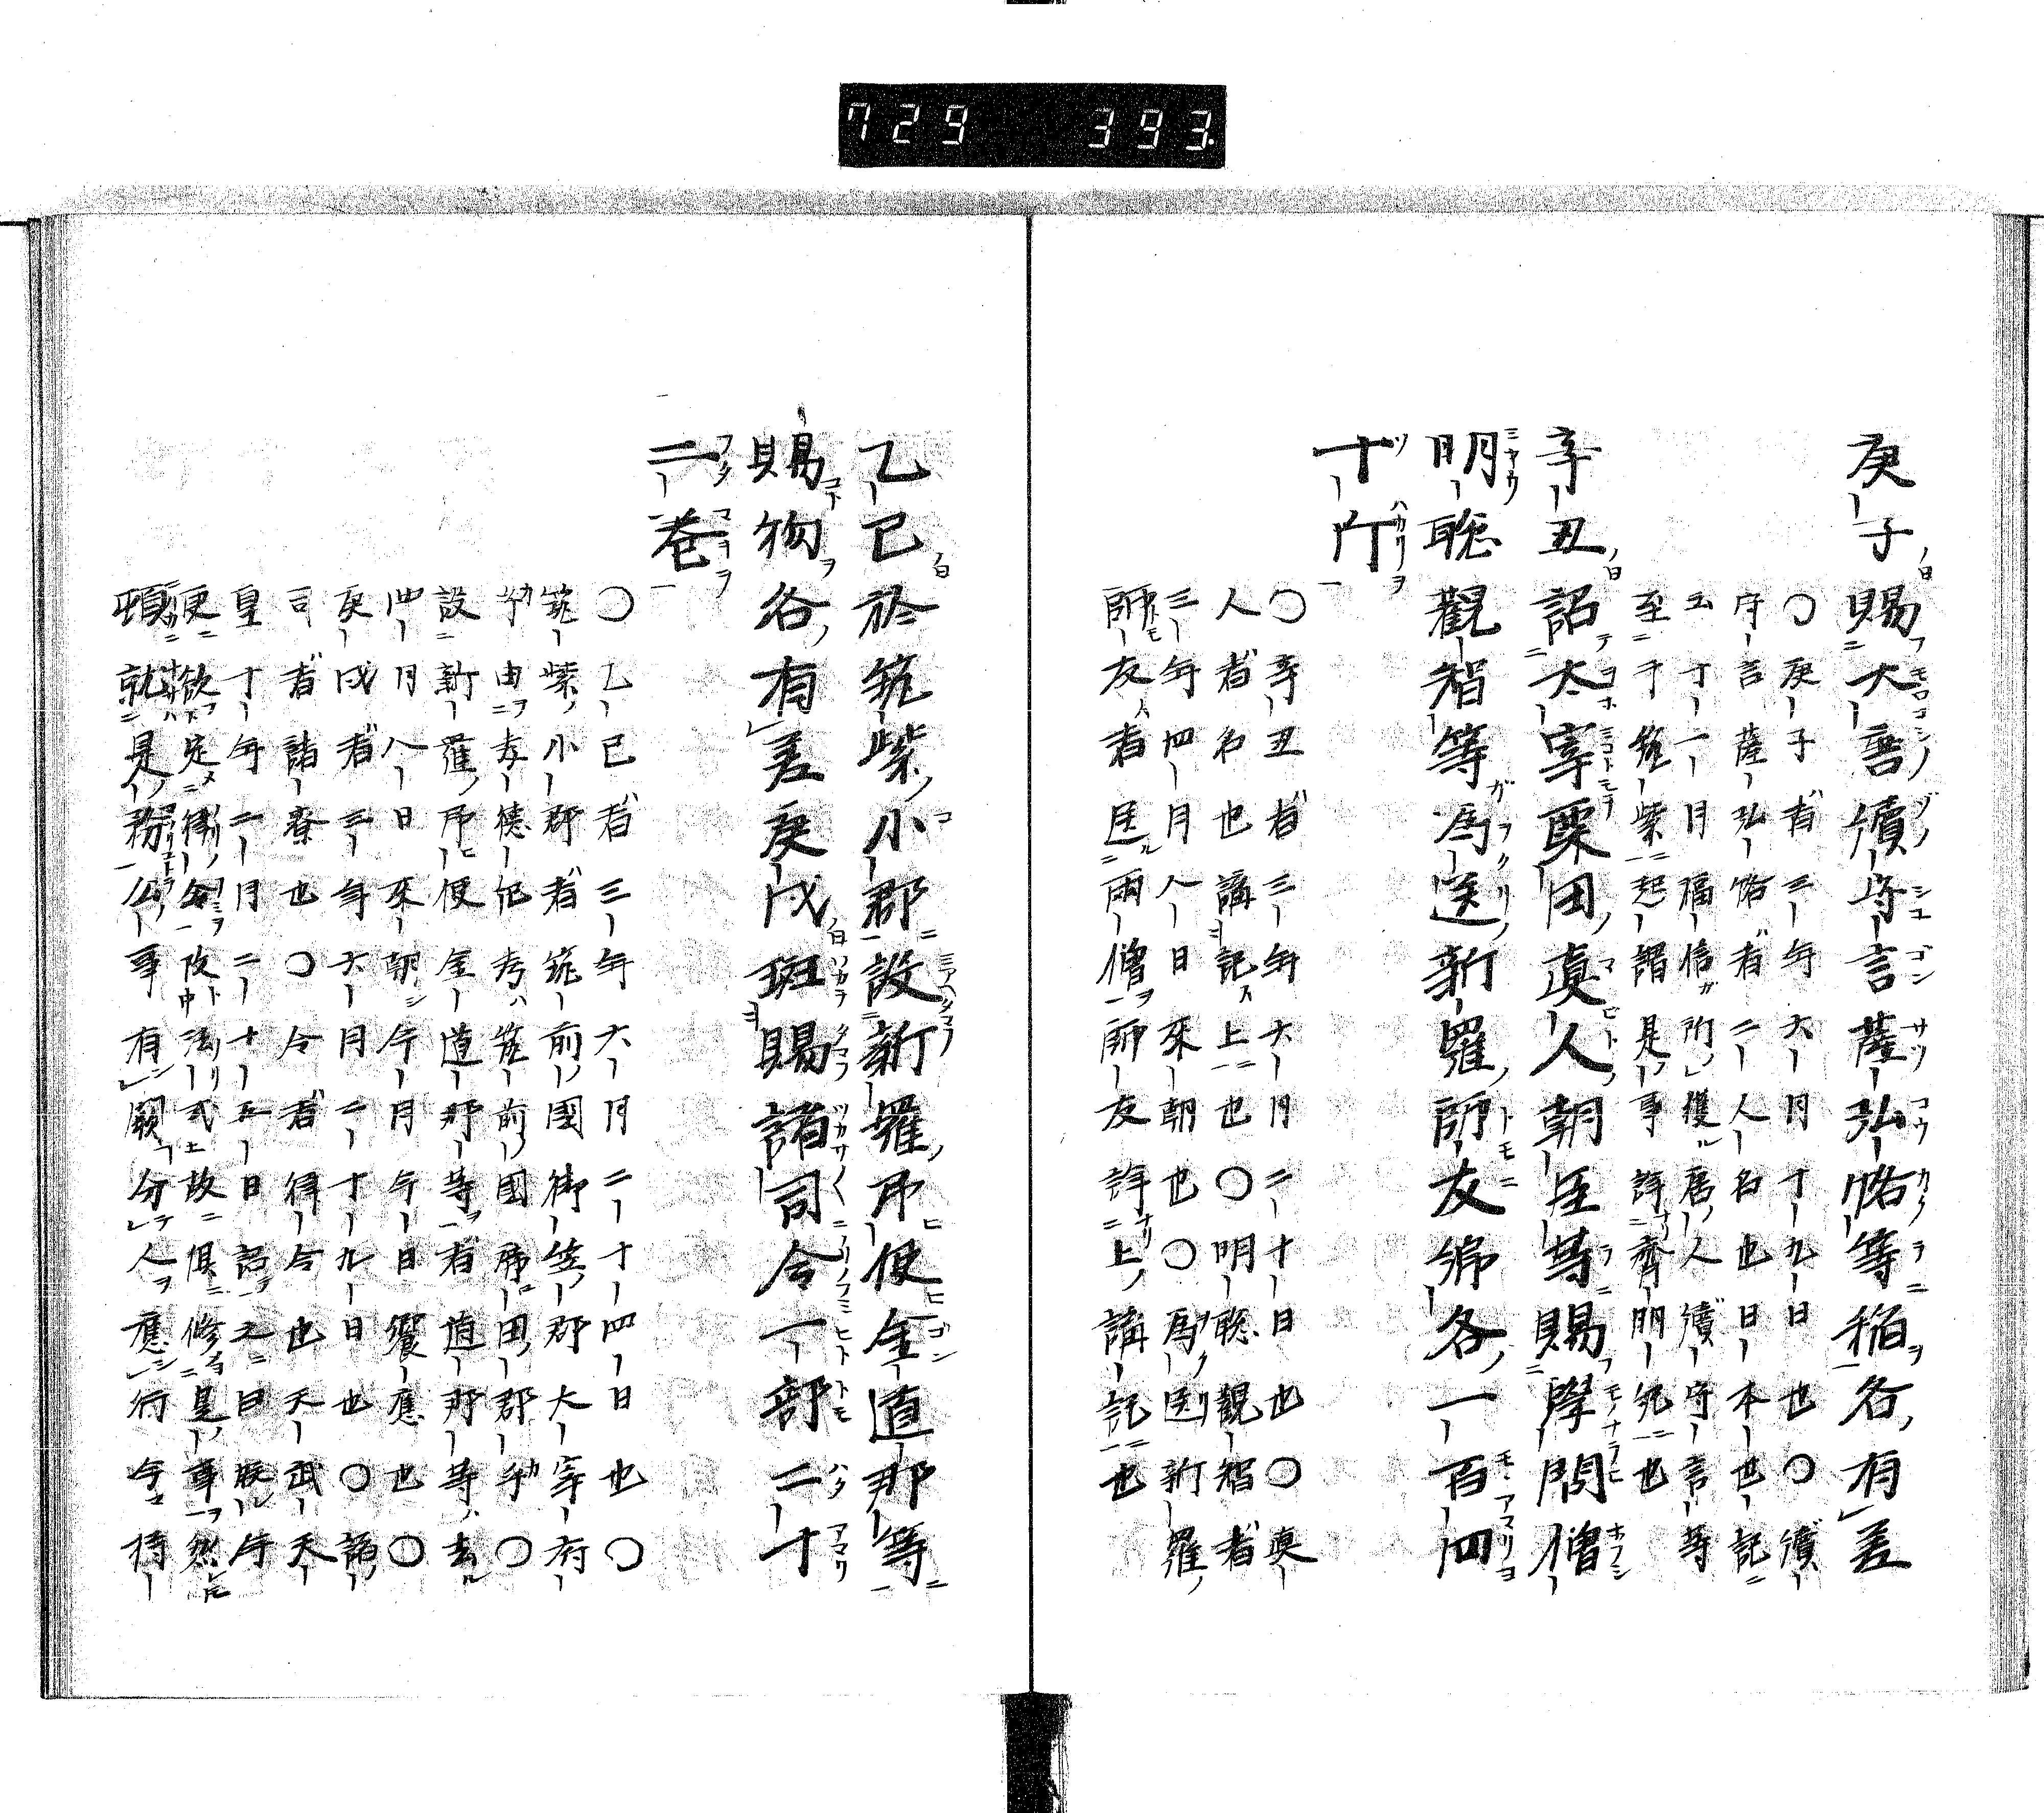 729 393
庚子賜大唐續守言薩弘恪等稲各有差
〇庚子者三年六月十九日也〇續
守言薩弘恪者二人名也日本也記
五十一月福信所獲唐人續守言等
至于筑紫起謂是事詳齊明紀也
辛丑詔太宰粟田真人朝臣等賜學問僧
明聡觀智等為送新羅師友綿各一百四
十斤
〇辛丑者三年六月二十日也〇真
人者名也講記上也〇明聡觀智者
三年四月八日來朝也〇為送新羅
師友者送兩僧師友詳上講記也
乙巳於筑紫小郡設新羅弔使金道那等
賜物各有差庚戌班賜諸司令一部二十
二巻
〇乙巳者三年六月二十四日也〇
筑紫小郡者筑前國御笠郡大宰府
由孝德紀考筑前國席田郡〇
設新羅弔使金道那等者道那等去
四月八日來朝今月今日饗應也〇
庚戌者三年六月二十九日也〇諸
司者諸寮也〇令者律令也天武天
皇十年二月二十五日詔之曰朕今
更欲定律令改法式故俱修是事然
頓就是務公事有闕分人應行今待